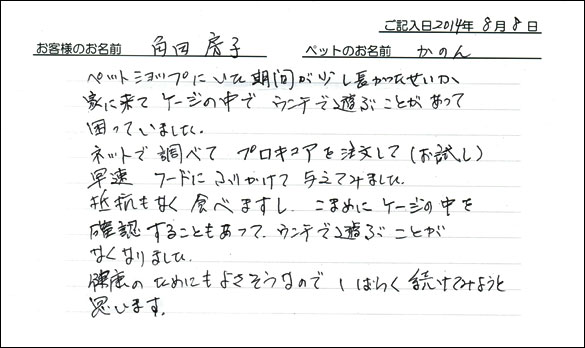 ご記入日2014年 8月 8日
お客様のお名前 角田 房子 ペットのお名前 かのん
ペットショップにいた期間が少し長かったせいか、
家に来て ケージの中で ウンチで遊ぶことがあって
困っていました。
ネットで調べて プロキュアを注文して(お試し)
早速 フードにふりかけて 与えてみました。
抵抗もなく 食べますし、こまめに ケージの中を
確認することもあって、ウンチで遊ぶ ことが
なくなりました。
健康の ためにもよさそうなので しばらく 続けてみようと
思います。